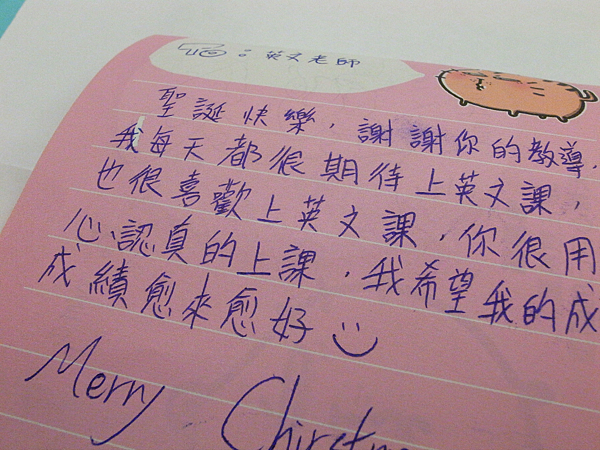 ：英文老師
聖誕快樂，謝謝你的教導，
我每天都很期待上英文課，
也很喜歡上英文課，你很用
心、認真的上課，我希望我的成
成績愈來愈好
Merry